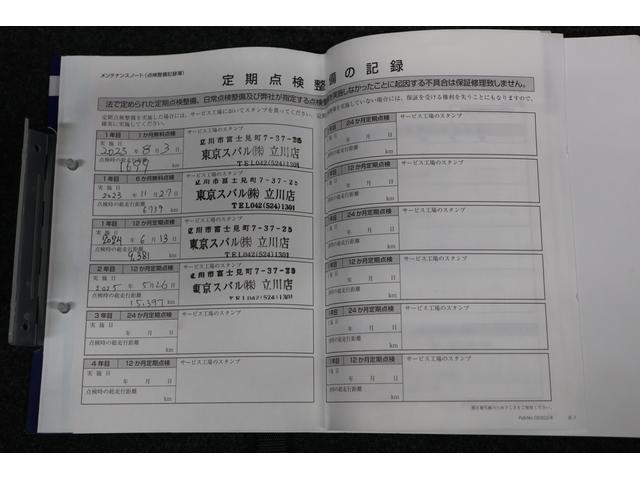 メンテナンスノート（点検整備記録簿）
定期点検整備の記録
法で定められた定期点検整備、日常点検整備及び弊社が指定する点検
を実施しなかったことに起因する不具合は保証修理致しません。
定期点検整備を実施した場合には、サービス工場においてスタンプを貰ってください。
を実施していない場合には、保証を受ける権利を失うことにもなりますので、
確実に実施してください。
1年目 1か月無料点検 サービス工場のスタンプ
実施日 2023年 8月 3日
立川市富士見町7-37-25
東京スバル㈱ 立川店
TEL042(524)1301
点検時の総走行距離
1699 km
1年目 6か月無料点検 サービス工場のスタンプ
実施日
2023年 11月 27日
立川市富士見町7-37-25
東京スバル㈱ 立川店
TEL042(524)1301
点検時の総走行距離
6739 km
1年目 12か月定期点検 サービス工場のスタンプ
実施日
2024年 6月 13日
立川市富士見町7-37-25
東京スバル㈱ 立川店
TEL042(524)1301
点検時の総走行距離
9,381 km
2年目 12か月定期点検 サービス工場のスタンプ
実施日
2025年 5月 26日
立川市富士見町7-37-25
東京スバル㈱ 立川店
TEL042(524)1301
点検時の総走行距離
15,397 km
3年目 24か月定期点検 サービス工場のスタンプ
実施日
年 月 日
点検時の総走行距離
km
4年目 12か月定期点検 サービス工場のスタンプ
実施日
年 月 日
点検時の総走行距離
km
24か月定期点検 サービス工場のスタンプ
年 月 日
km
12か月定期点検 サービス工場のスタンプ
年 月 日
km
24か月定期点検 サービス工場のスタンプ
年 月 日
km
12か月定期点検 サービス工場のスタンプ
年 月 日
km
24か月定期点検 サービス工場のスタンプ
年 月 日
km
12か月定期点検 サービス工場のスタンプ
年 月 日
km